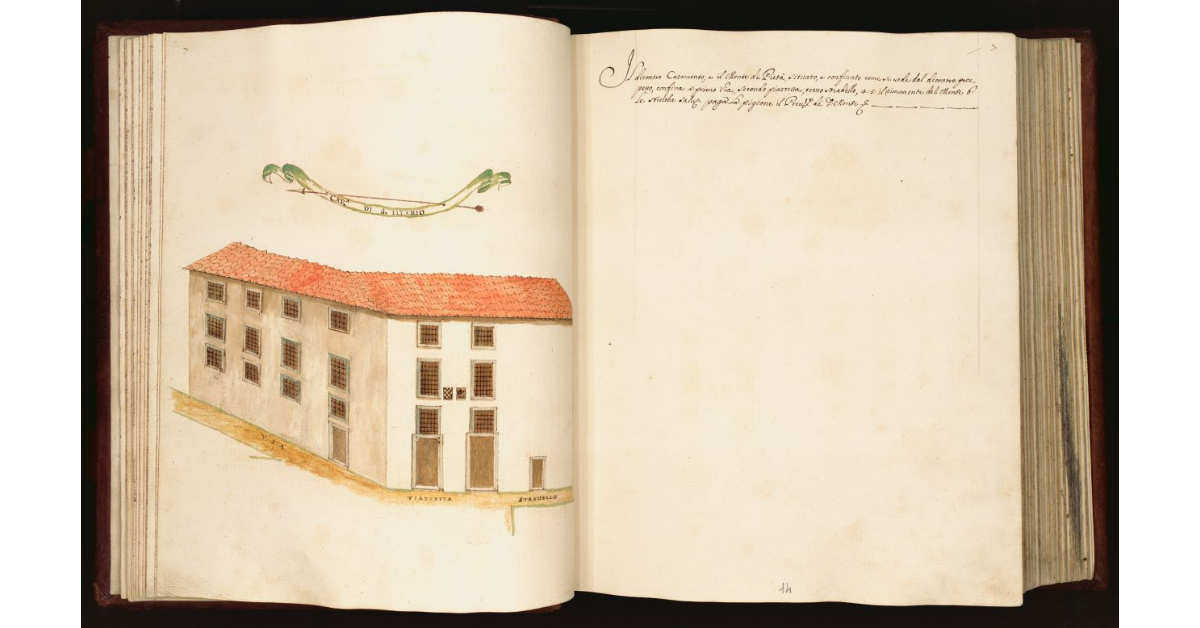 7
CASA DI S. ILLARIO
VIA
PIAZZETTA
STRADELLO
3
Il dicontro Casamento, e il Monte di Pietà, situato, e confinato come si vede dal dicontro pros-
petto, confina a primo Via, secondo piazzetta, terzo stradello, 4. il rimanente del Monte
paga la pigione il Monte
14